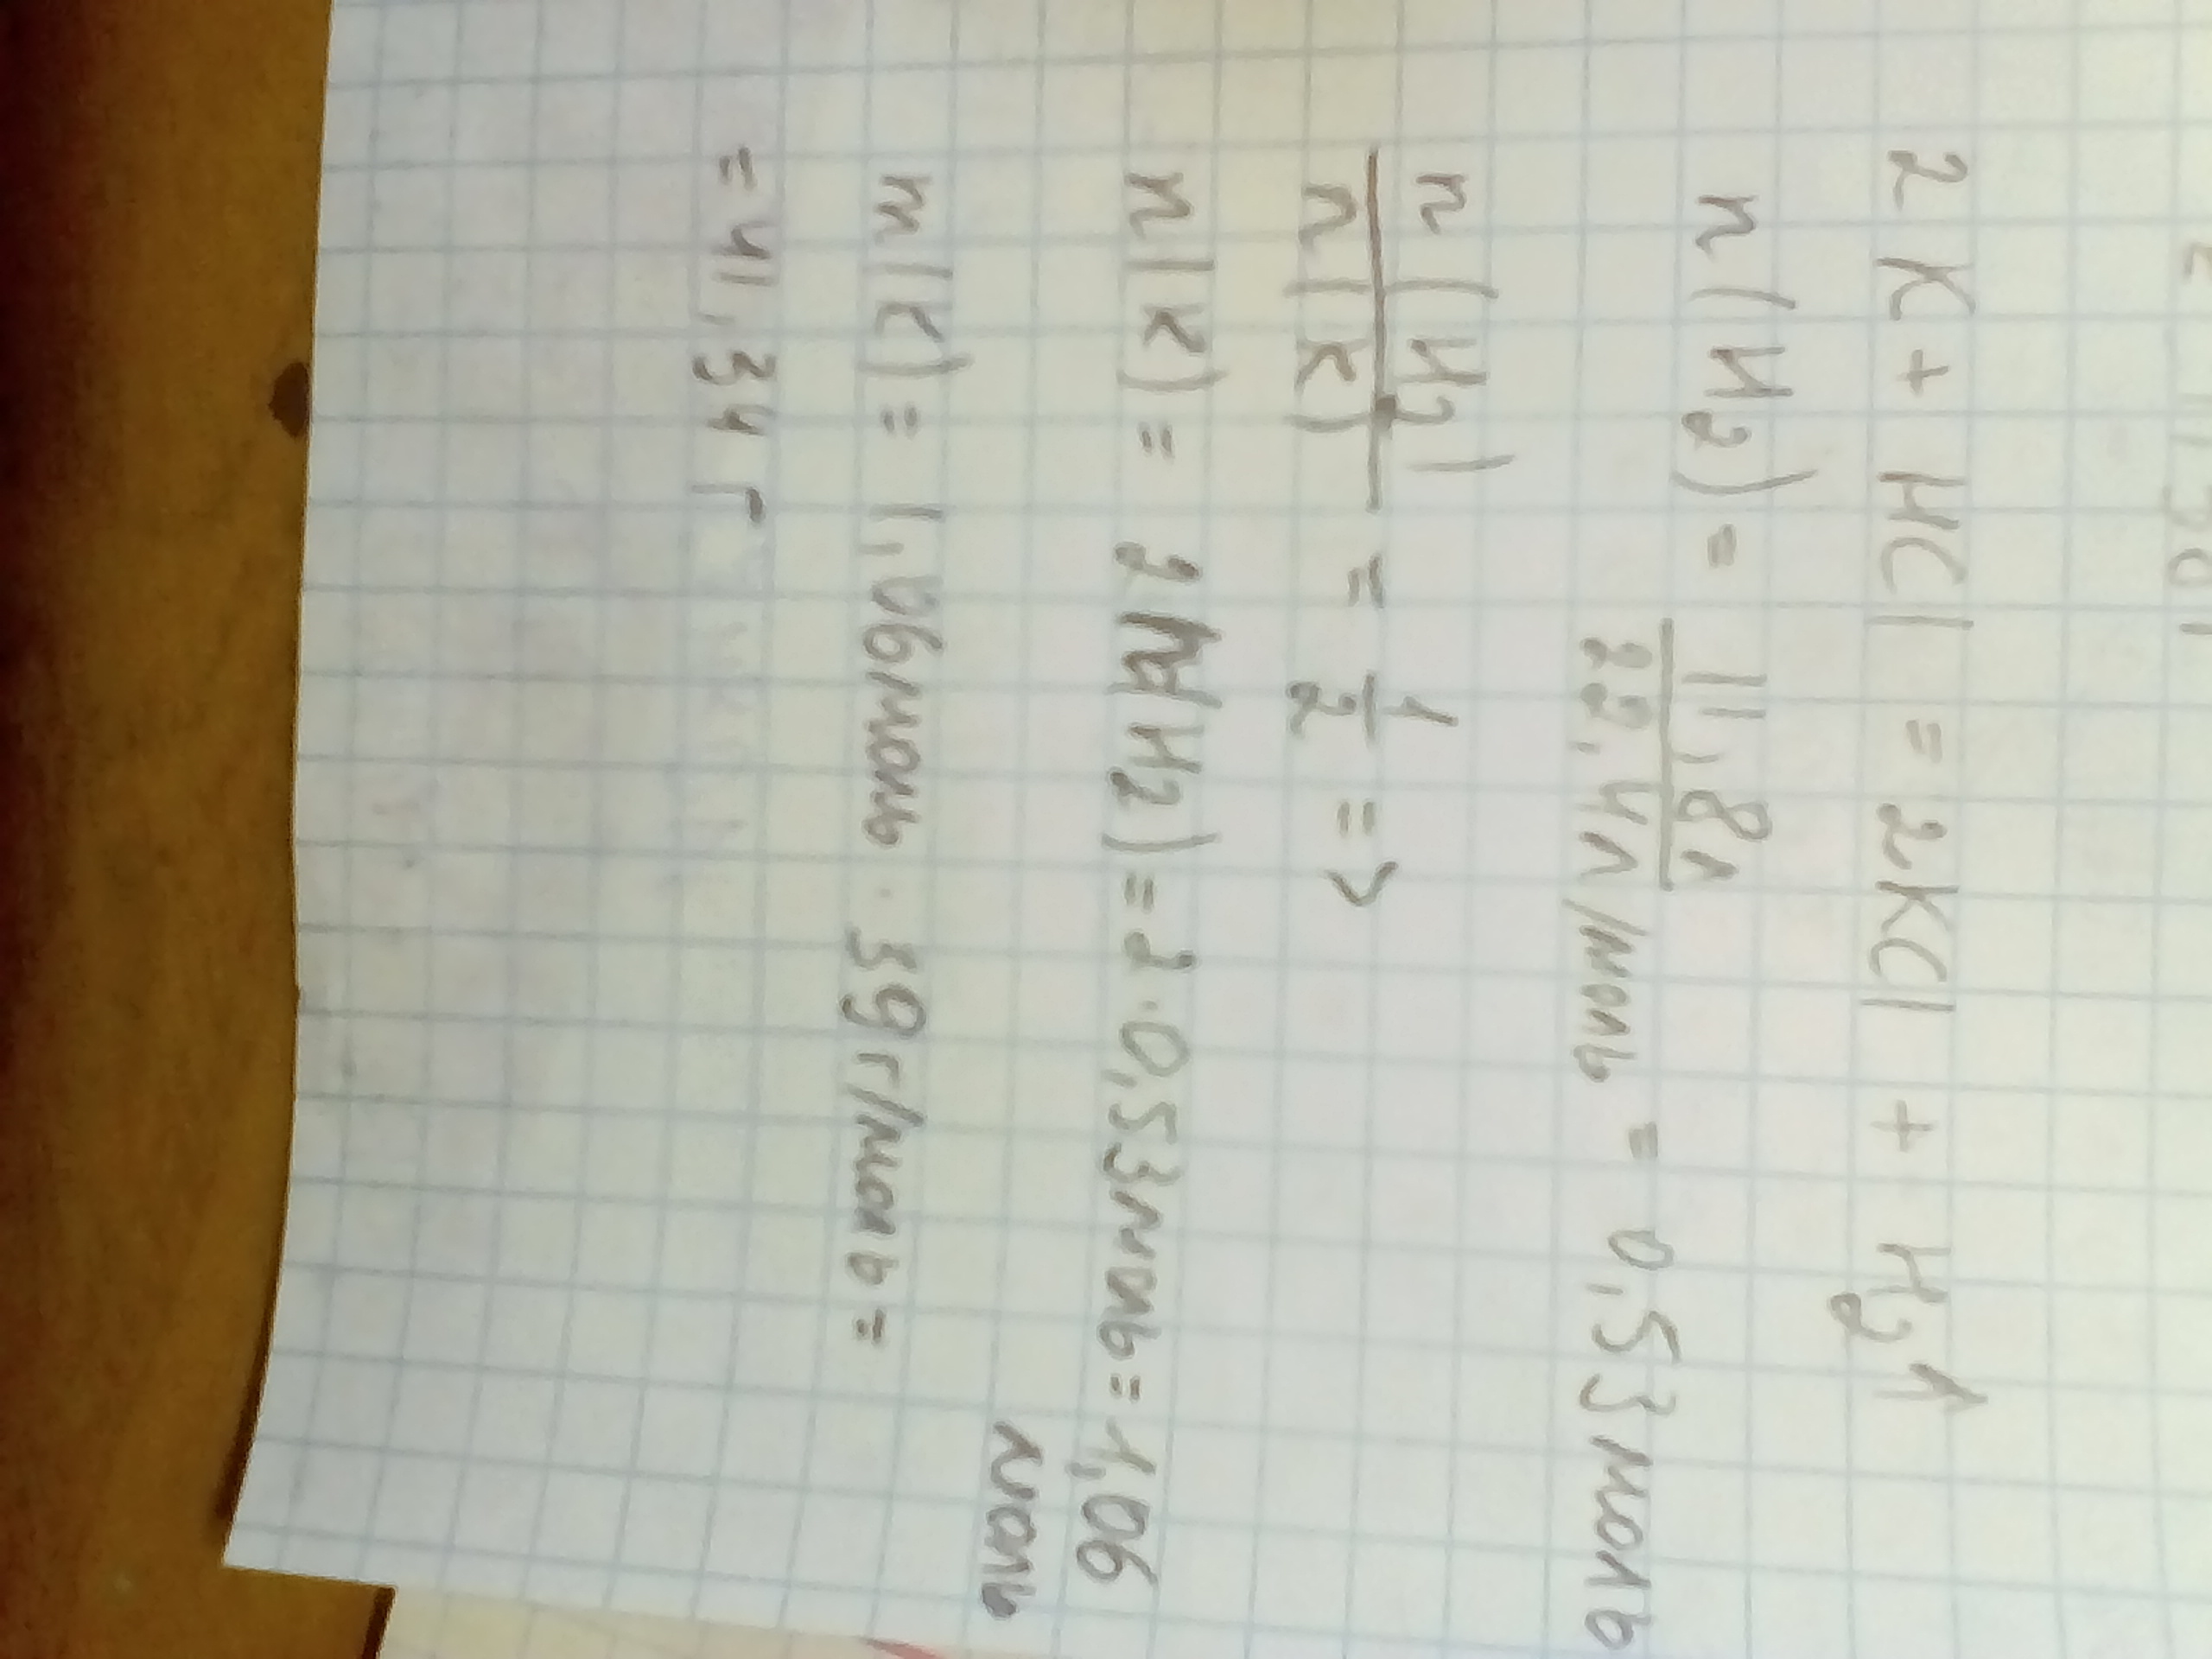 2K + HCl = 2KCl + H2↑
n(H2) = 11,8л / 22,4л/моль = 0,53моль
n(H2) / n(K) = 1/2 =>
n(K) = 2n(H2) = 2·0,53моль = 1,06
моль
m(K) = 1,06моль · 39г/моль =
= 41,34 г